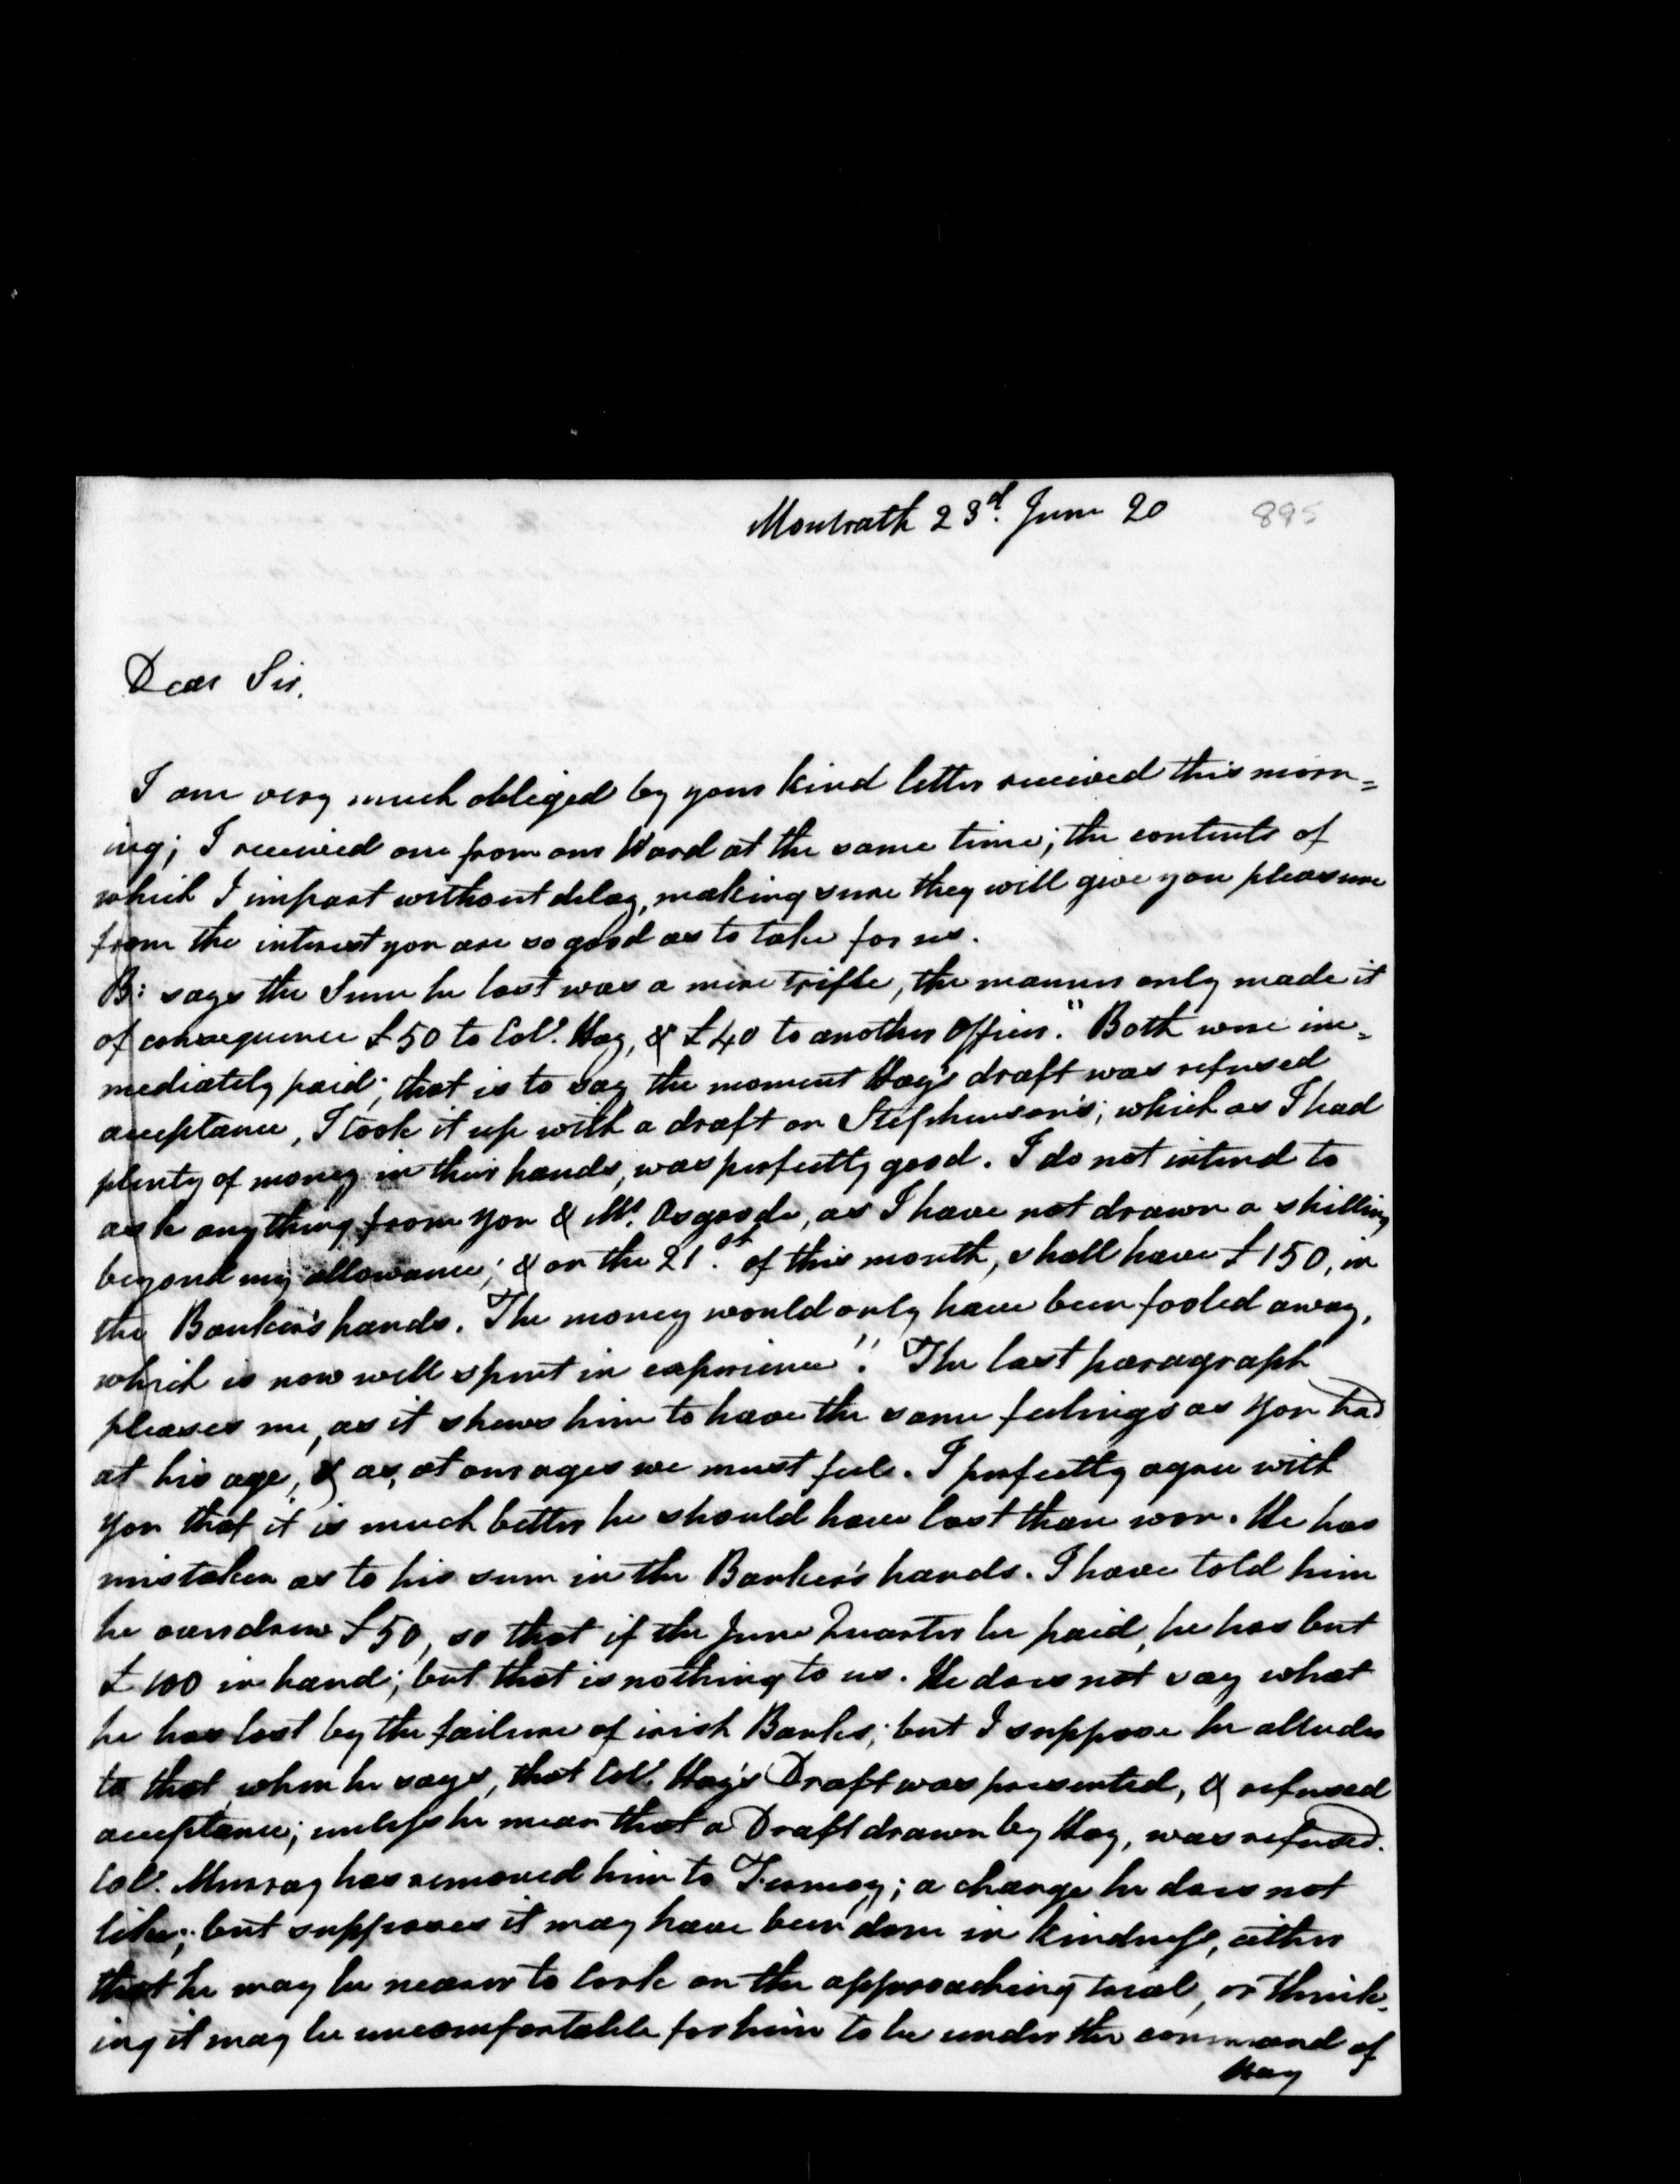 Montrath 23d. June 20
895
Dear Sir,
I am very much obliged by your kind letter received this morn=
ing; I received one from our Ward at the same time; the contents of
which I impart without delay, making sure they will give you pleasure
from the interest you are so good as to take for us.
B: says the Sum he lost was a mere trifle, the manner only made it
of consequence £50 to Col. Hay, & £40 to another Officer." Both were im=
mediately paid; that is to say the moment Hay's draft was refused
acceptance, I took it up with a draft on Stephenson's; which as I had
plenty of money in their hands, was perfectly good. I do not intend to
ask anything from you & Mr. Osgoode, as I have not drawn a shilling
beyond my allowance; & on the 21st. of this month, shall have £150, in
the Banker's hands. The money would only have been fooled away,
which is now well spent in experience". The last paragraph
pleases me, as it shews him to have the same feelings as you had
at his age, & as, at our ages we must feel. I perfectly agree with
you that it is much better he should have lost than won. He has
mistaken as to his sum in the Banker's hands. I have told him
he overdrew £50, so that if the June Quarter be paid, he has but
£100 in hand; but that is nothing to us. He does not say what
he has lost by the failure of irish Banks; but I suppose he alludes
to that when he says, that Col. Hay's Draft was presented, & refused
acceptance; unless he mean that a Draft drawn by Hay, was refused.
Col. Murray has removed him to Fermoy; a change he does not
like; but supposes it may have been done in kindness, either
that he may be nearer to Cork on the approaching trial, or think=
ing it may be uncomfortable for him to be under the command of
Hay